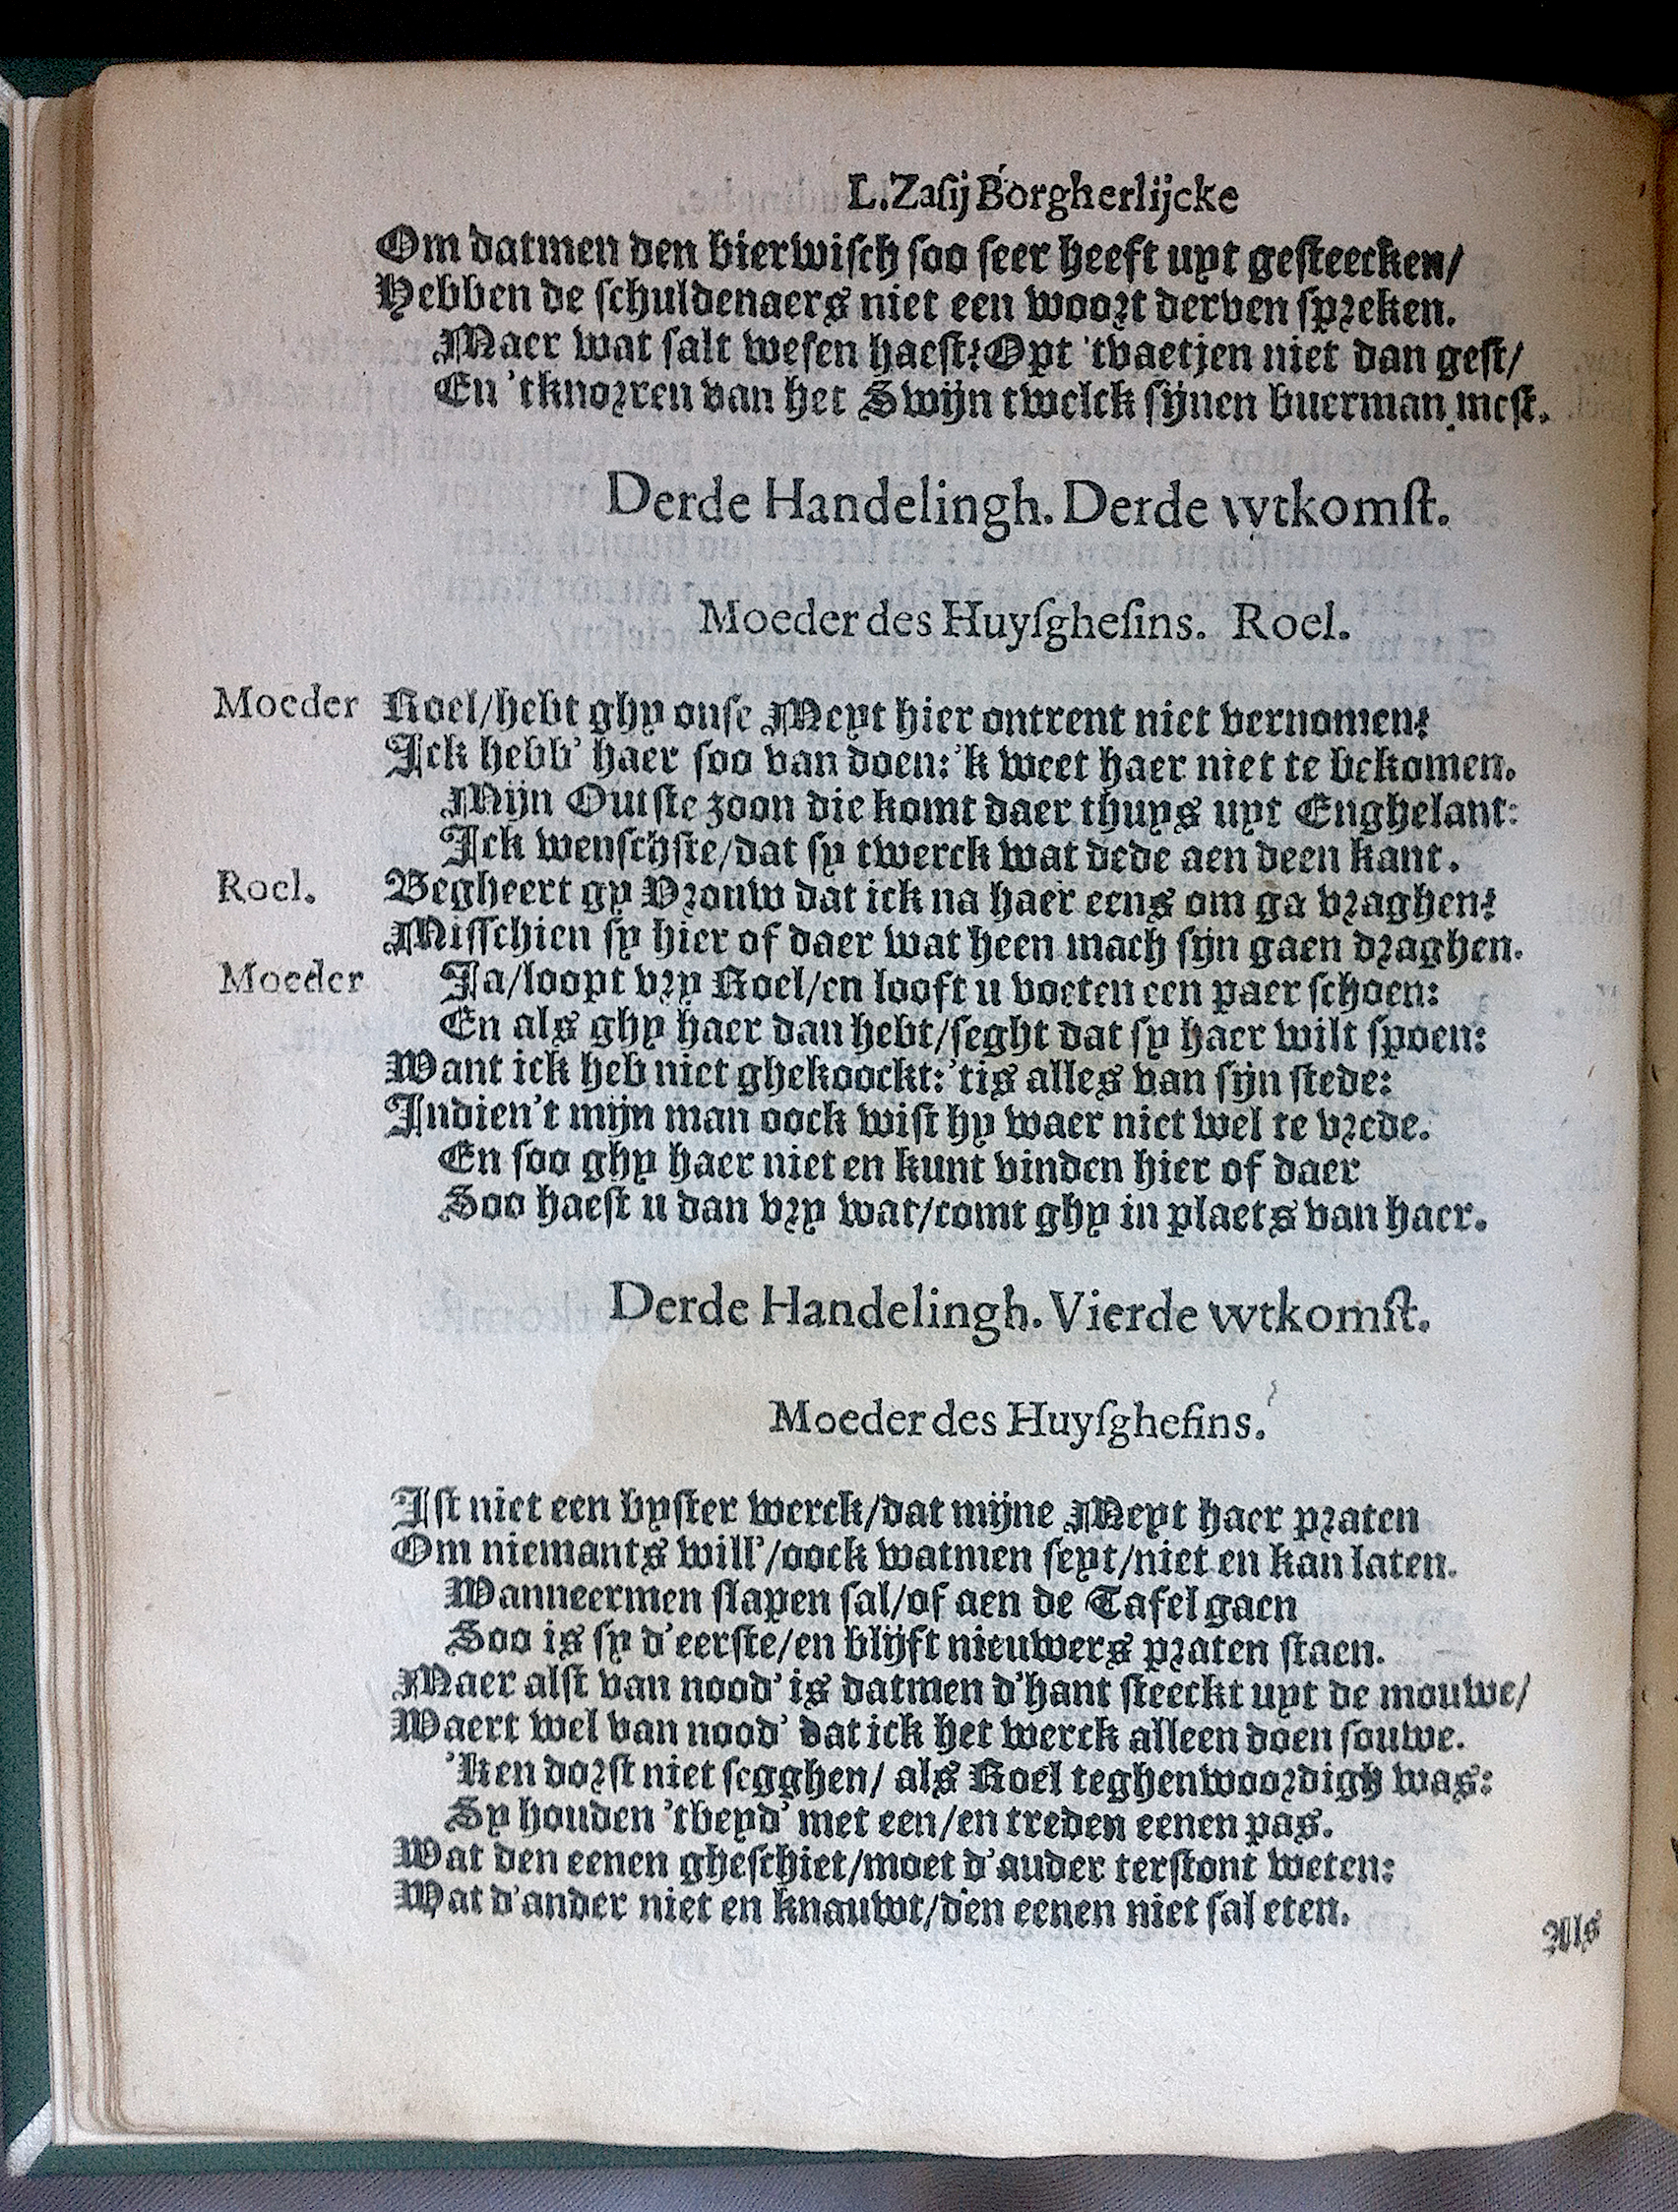 L. Zasij Borgherlijcke
Om datmen den bierwisch soo seer heeft uyt gesteecken/
Hebben de schuldenaers niet een woort derven spreken.
Maer wat salt wesen haest? Opt 'tvaetjen niet dan gest/
En 'tknorren van het Swijn twelck sijnen buerman mest.
Derde Handelingh. Derde wtkomst.
Moeder des Huysghesins. Roel.
Moeder Roel/hebt ghy onse Meyt hier ontrent niet vernomen?
Ick hebb' haer soo van doen: 'k weet haer niet te bekomen.
Mijn Outste zoon die komt daer thuys uyt Enghelant:
Ick wenschste/dat sy twerck wat dede aen deen kant.
Roel. Begheert gy Vrouw dat ick na haer eens om ga vraghen?
Misschien sy hier of daer wat heen mach sijn gaen draghen.
Moeder Ja/loopt vry Roel/en looft u voeten een paer schoen:
En als ghy haer dan hebt/seght dat sy haer wilt spoen:
Want ick heb niet ghekoockt: 'tis alles van sijn stede:
Indien't mijn man oock wist hy waer niet wel te vrede.
En soo ghy haer niet en kunt vinden hier of daer
Soo haest u dan vry wat/comt ghy in plaets van haer.
Derde Handelingh. Vierde wtkomst.
Moeder des Huysghesins.
Ist niet een byster werck/dat mijne Meyt haer praten
Om niemants will'/oock watmen seyt/niet en kan laten.
Wanneermen slapen sal/of aen de Tafel gaen
Soo is sy d'eerste/en blijft nieuwers praten staen.
Maer alst van nood' is datmen d'hant steeckt uyt de mouwe/
Waert wel van nood' dat ick het werck alleen doen souwe.
'Ken dorst niet segghen/ als Roel teghenwoordigh was:
Sy houden 'tbeyd' met een/en treden eenen pas.
Wat den eenen gheschiet/moet d'auder terstont weten:
Wat d'ander niet en knauwt/den eenen niet sal eten.
Als